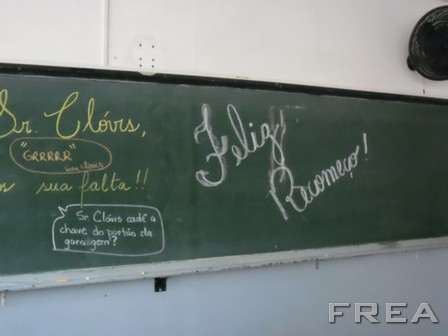 Sr. Clóvis,
"GRRRRR"
sua falta!!
Sr Clóvis cadê a
chave do portão da
garagem?
Feliz
Recomeço!
FREA